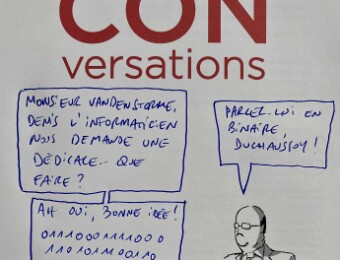 CON
versations
MONSIEUR VANDENSTORME,
DENIS L'INFORMATICIEN
NOUS DEMANDE UNE
DÉDICACE... QUE
FAIRE ?
PARLEZ-LUI EN
BINAIRE,
DUCHAUSSOY !
AH OUI, BONNE IDÉE !
0110001110000
11010110010110